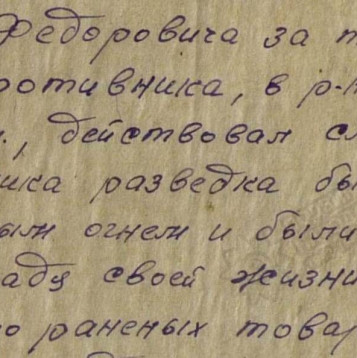 Федоровича за п
ротивника, в р-н
., действовал см
ика разведка бы
ым огнем и были
адя своей жизни
о раненых товар